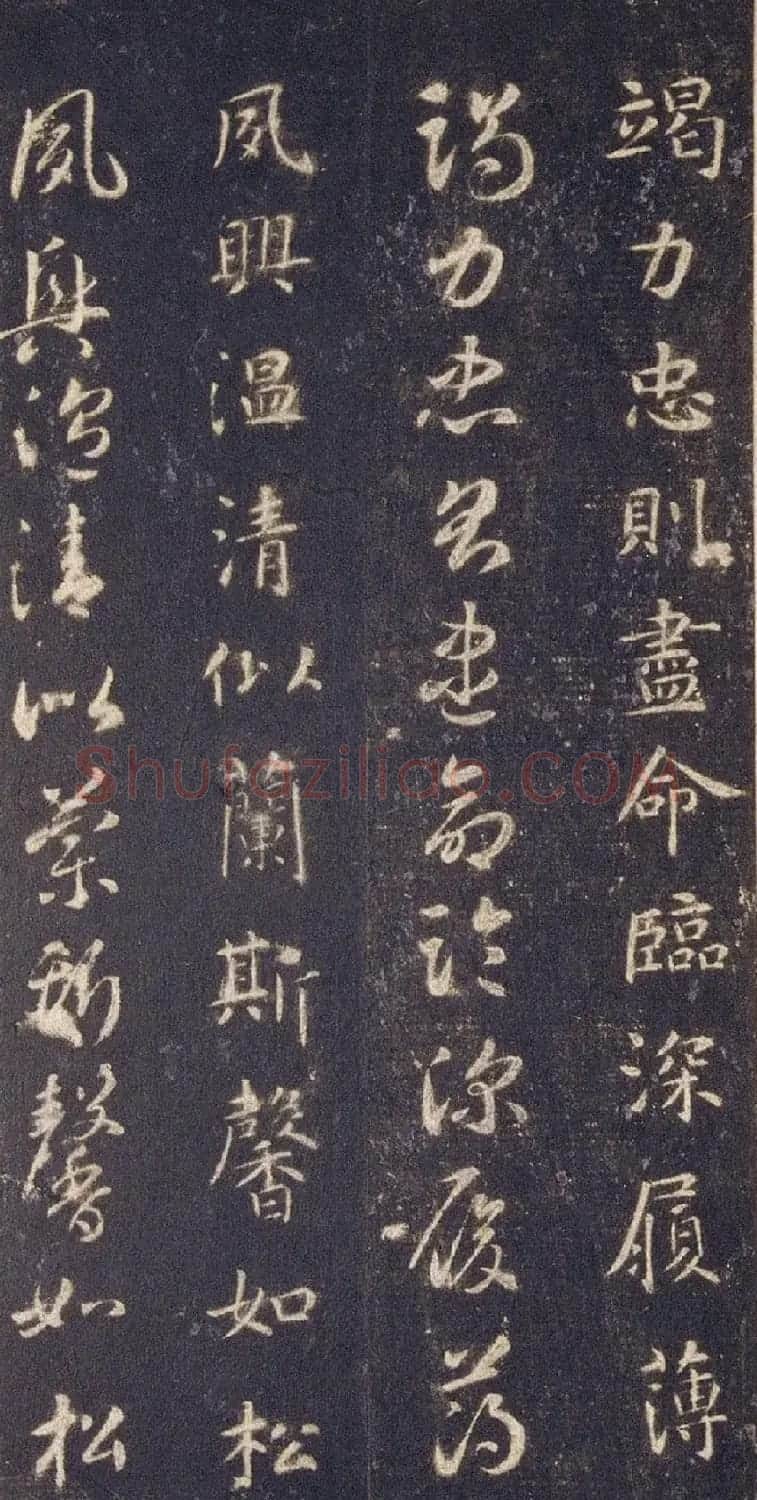 竭力忠則盡命臨深履薄
竭力忠則盡命臨深履薄
夙興温清似蘭斯馨如松
夙興温清似蘭斯馨如松
Shufaziliao.COM